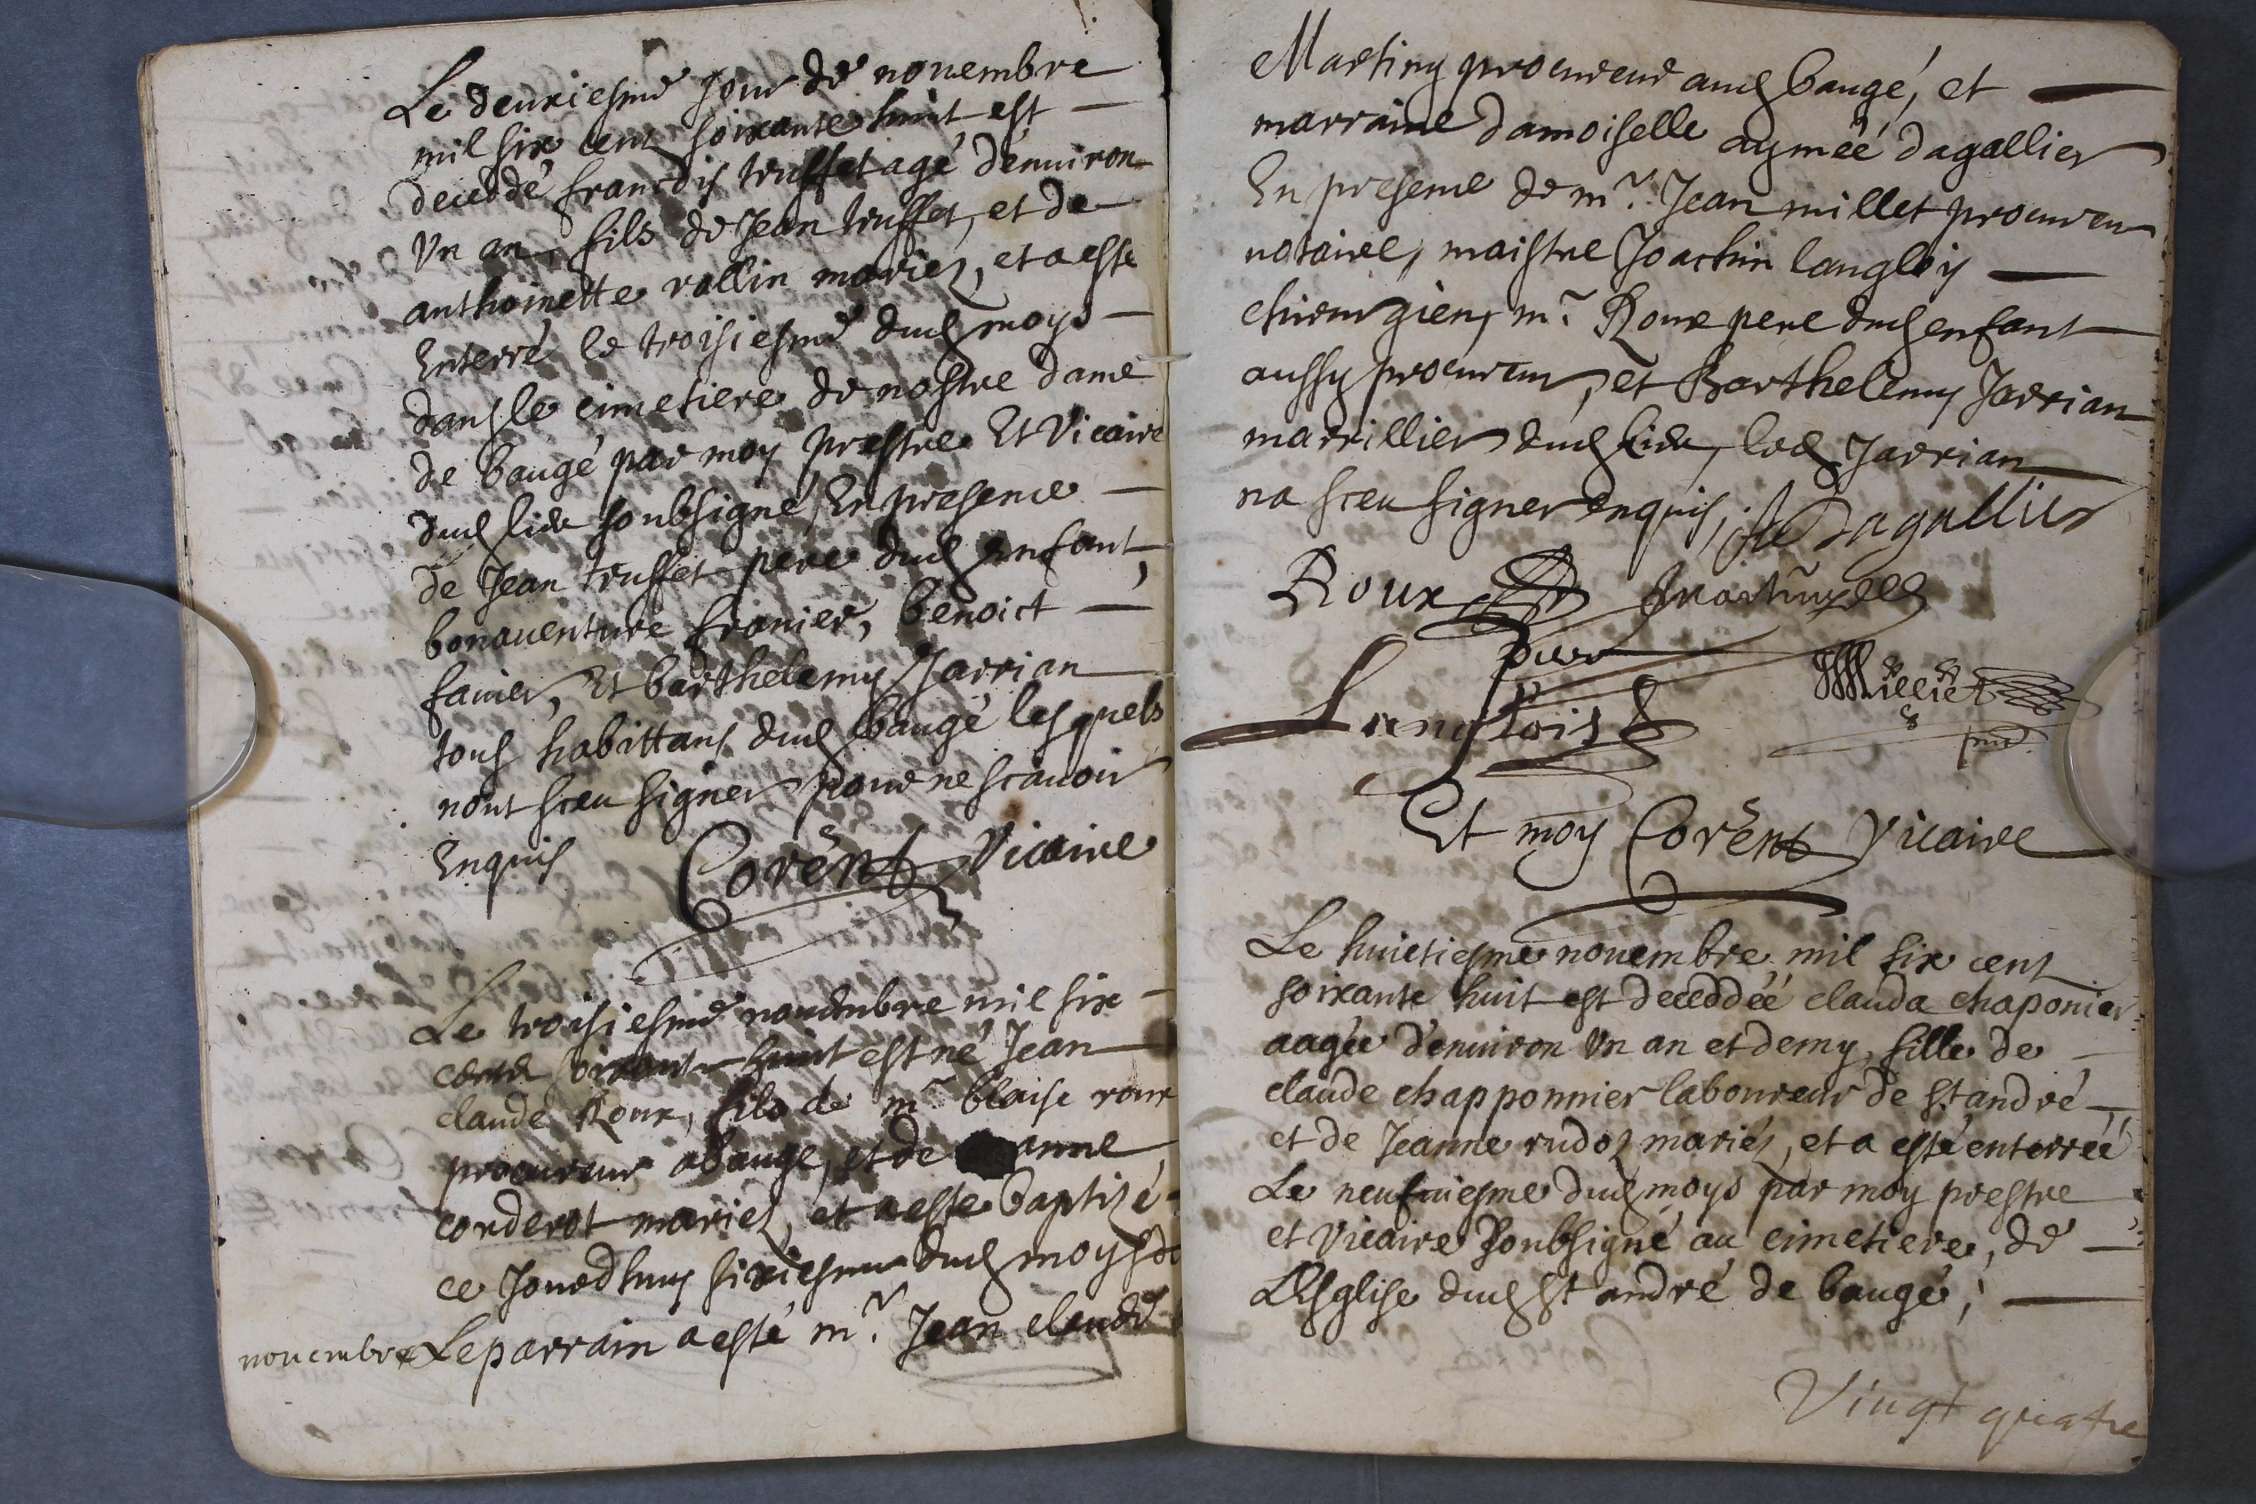 Le deuxiesme jour de nouembre
mil six cent soixante huit est
decedé françois truffet agé denuiron
Vn an, fils de Jean truffet, et de
anthoinette rollin mariez, et a esté
Enterré le troisiesme dud moys
dans le cimetiere de nostre dame
de baugé par moy prestre Et Vicaire
dud lieu soubsigné, En presence
de Jean truffet pere dud enfant,
bonauenture franier, benoict
fauier, Et barthelemy Jarrian
tous habittans dud baugé lesquels
nont sceu signer pour ne scauoir
Enquis Corent Vicaire
Le troisiesme nouembre mil six
cent soixante huit est né Jean
claude Roux, fils de mr blaise roux
procureur a bauge, et de anne
corderot mariez, et a este baptisé
ce Jourdhuy sixiesme dud moys de
nouembre Le parrain a esté mr. Jean claude
Martiny procureur aud baugé, et
marraine damoiselle aymée dagallier
En presence de mr. Jean millet procureur
notaire, maistre Joachin langloy
chirurgien, mr. Roux pere dud enfant
aussy procureur, et Barthelemy Jarrian
marrillier dud lieu, led Jarrian
na sceu signer enquis, Dagallier
Roux
Langlois Milliet
Et moy Corent Vicaire
Le huictiesme nouembre mil six cent
soixante huit est decedée clauda chaponier
aagée d'enuiron Vn an et demy, fille de
claude chapponnier laboureur de St andré
et de Jeanne rudoz mariéz, et a esté enterrée
Le neufuiesme dud moys par moy prestre
et Vicaire soubsigné au cimetiere, de
LEsglise dud St andré de baugé,
Vingt quatre